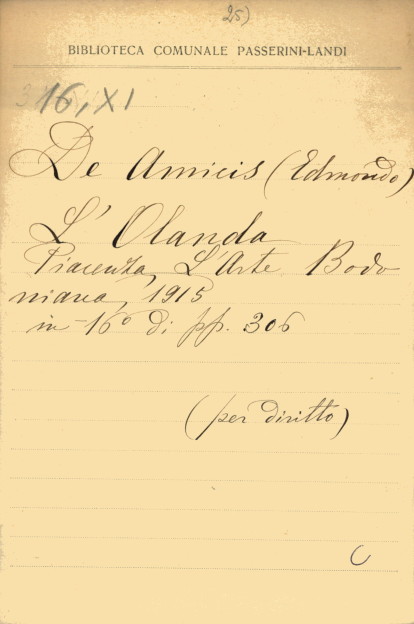 25)
BIBLIOTECA COMUNALE PASSERINI-LANDI
16, XI
De Amicis (Edmondo)
L' Olanda
Piacenza, L'Arte Bodo
niana, 1915
in-16° di pp. 306
(per diritto)
C